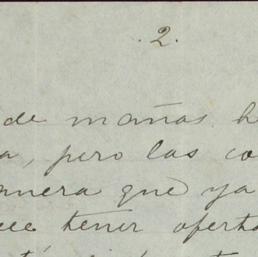 .2.
de mañas h
a, pero las co
nera que ya
ce tener oferta